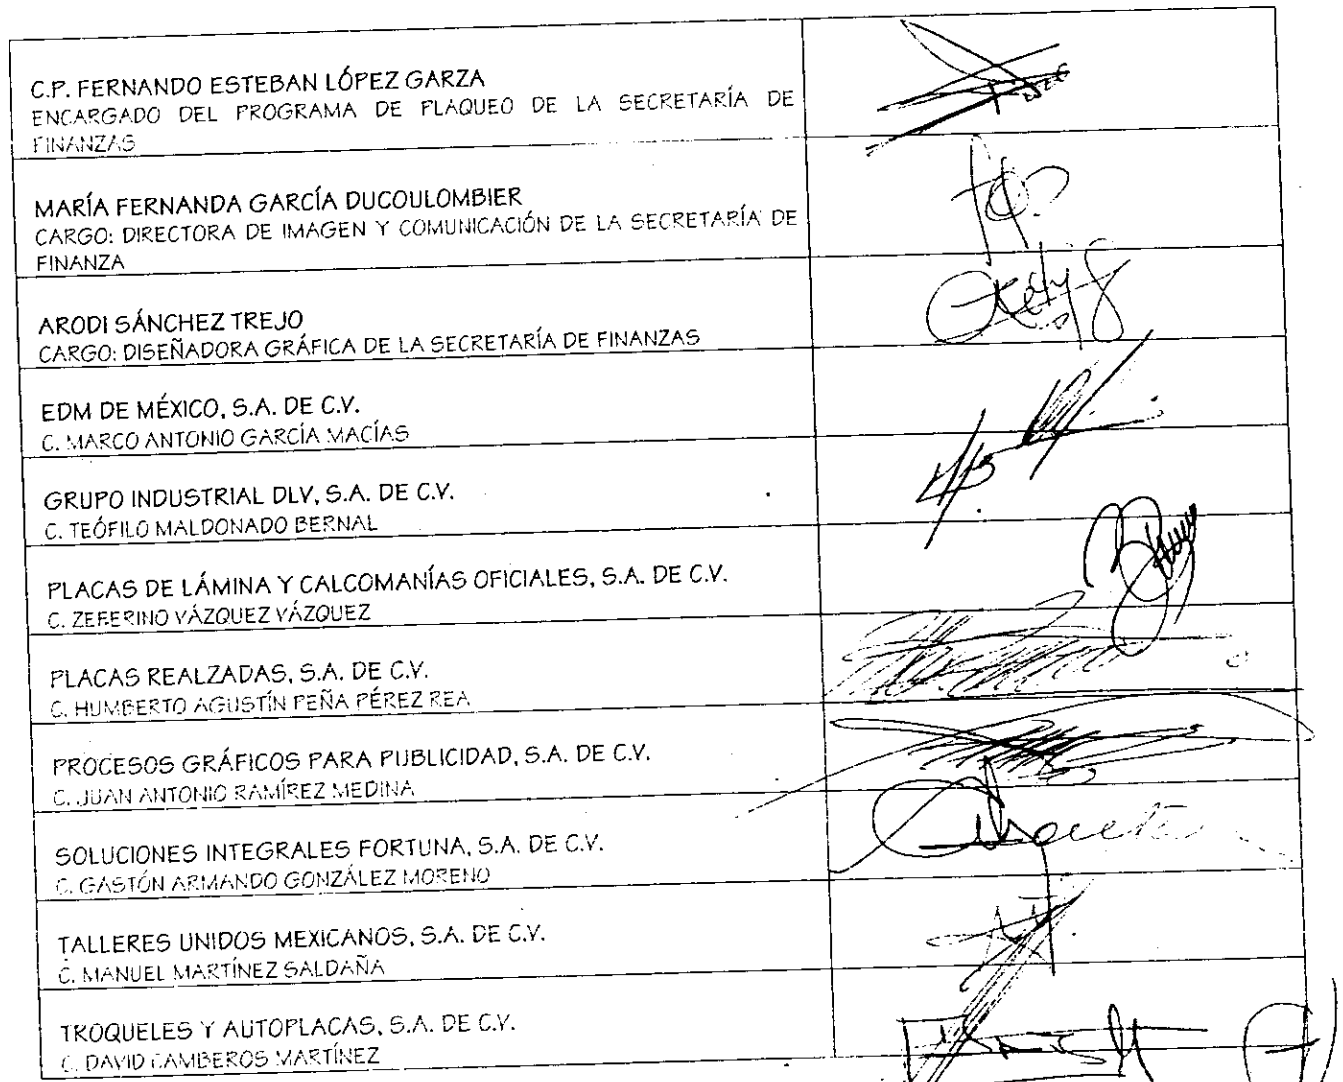 C.P. FERNANDO ESTEBAN LÓPEZ GARZA
ENCARGADO DEL PROGRAMA DE PLAQUEO DE LA SECRETARÍA DE
FINANZAS
MARÍA FERNANDA GARCÍA DUCOULOMBIER
CARGO: DIRECTORA DE IMAGEN Y COMUNICACIÓN DE LA SECRETARÍA DE
FINANZA
ARODI SÁNCHEZ TREJO
CARGO: DISEÑADORA GRÁFICA DE LA SECRETARÍA DE FINANZAS
EDM DE MÉXICO, S.A. DE C.V.
C. MARCO ANTONIO GARCÍA MACÍAS
GRUPO INDUSTRIAL DLV, S.A. DE C.V.
C. TEÓFILO MALDONADO BERNAL
PLACAS DE LÁMINA Y CALCOMANÍAS OFICIALES, S.A. DE C.V.
C. ZEFERINO VÁZQUEZ VÁZQUEZ
PLACAS REALZADAS, S.A. DE C.V.
C. HUMBERTO AGUSTÍN PEÑA PÉREZ REA
PROCESOS GRÁFICOS PARA PUBLICIDAD, S.A. DE C.V.
C. JUAN ANTONIO RAMÍREZ MEDINA
SOLUCIONES INTEGRALES FORTUNA, S.A. DE C.V.
C. GASTÓN ARMANDO GONZÁLEZ MORENO
TALLERES UNIDOS MEXICANOS, S.A. DE C.V.
C. MANUEL MARTÍNEZ SALDAÑA
TROQUELES Y AUTOPLACAS, S.A. DE C.V.
C. DAVID CAMBEROS MARTÍNEZ